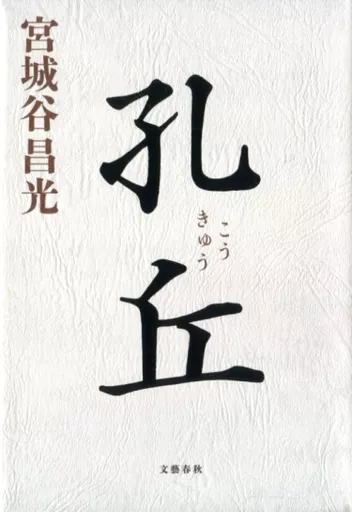 宮城谷昌光
孔丘
こう
きゅう
文藝春秋